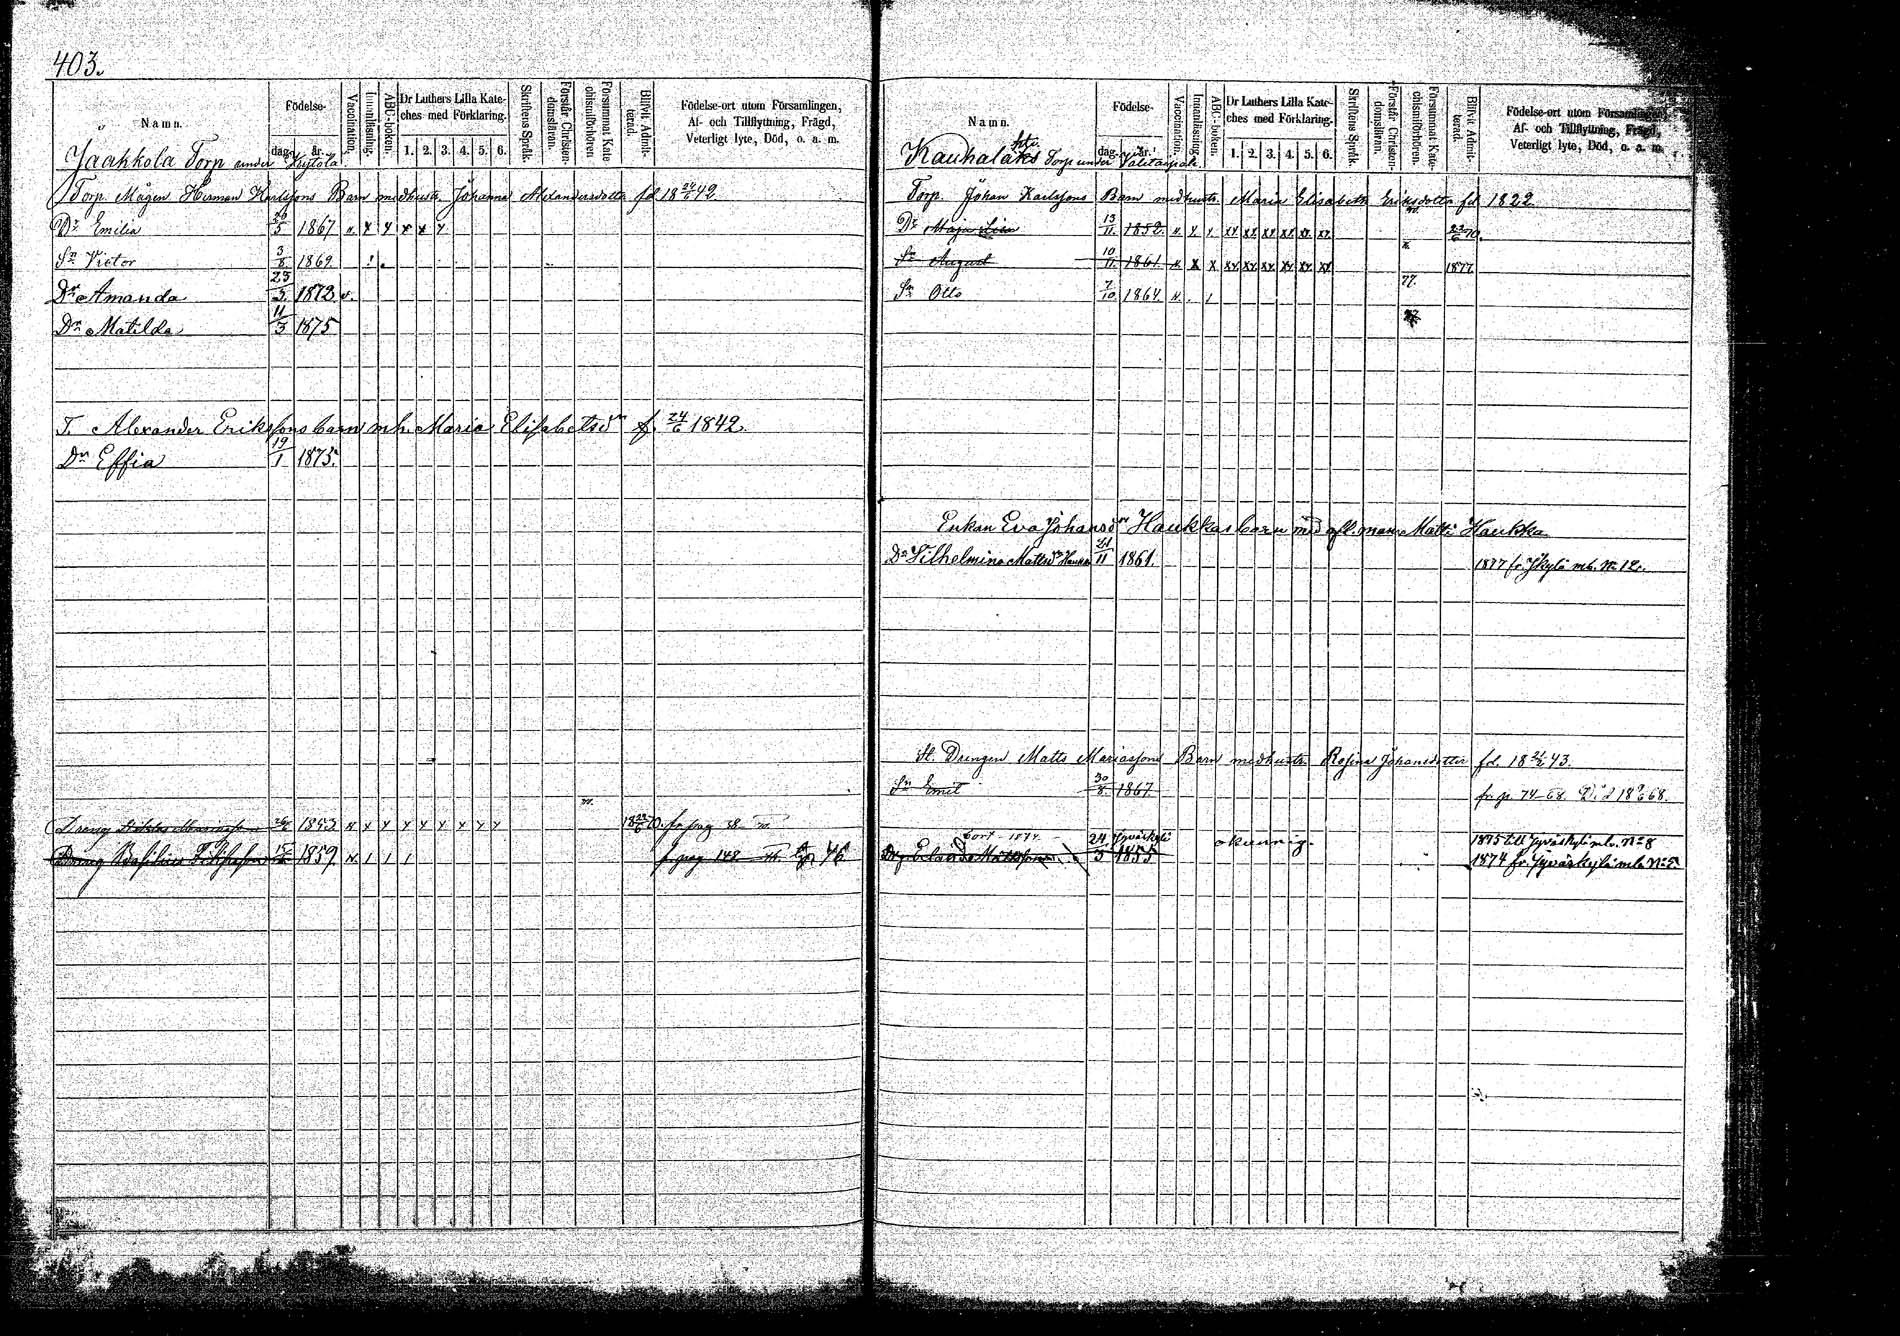 403.
Namn.
Födelse-
dag. år.
Vaccination.
Innanläsning.
ABC-boken.
Dr Luthers Lilla Kate-
ches med Förklaring.
1. 2. 3. 4. 5. 6.
Skriftens Språk.
Förstår Christen-
domsläran.
Försummat Kate-
chismiförhören.
Blifvit Admit-
terad.
Födelse-ort utom Församlingen,
Af- och Tillflyttning, Frägd,
Veterligt lyte, Död, o. a. m.
Jaahkola Torp under Keytola
Torp. Mågen Herman Karlssons Barn med hustr. Johanna Alexandersdotter fd 18 24/4 42.
Dr Emilia 26/5 1867 v. x x x x x
Sn Victor 3/8 1869.
Dr Amanda 25/3 1872 v.
Dr Matilda 11/3 1875
T. Alexander Erikssons barn m. h. Maria Elisabetsdr f. 24/6 1842.
Dr Effia 19/1 1875.
Dreng 1853 18 70. fr pag 38
Dreng Basilius 1859. v. 1 1 1 fr pag 148 76
Namn.
Födelse-
dag. år.
Vaccination.
Innanläsning.
ABC-boken.
Dr Luthers Lilla Kate-
ches med Förklaring.
1. 2. 3. 4. 5. 6.
Skriftens Språk.
Förstår Christen-
domsläran.
Försummat Kate-
chismiförhören.
Blifvit Admit-
terad.
Födelse-ort utom Församlingen,
Af- och Tillflyttning, Frägd,
Veterligt lyte, Död, o. a. m.
Kauhalaks Torp under
Torp. Johan Karlssons Barn med hustr. Maria Elisabeth Eriksdotter fd 1822.
Dr Maja Lisa 13/11 1852. v x x xx xx xx xx xx xx 70.
Sn August 10/11 1861. v x x xx xx xx xx xx xx 1877.
Sn Otto 7/10 1864. v. 77.
Enkan Eva Johansdr Haukkas barn med afl. man Matti Haukka
Dr Vilhelmina Mattsdr Haukka 21/11 1861. 1877 fr. Jkylä mb. No 12.
St. Drengen Matts Mariassons Barn med hustr. Rosina Johansdotter fd. 18 43.
Sn Emil 30/8 1867. fr. p. 74-68. Död 18 68.
bort - 1874 - Jyväskylä okunnig. 1875 till Jyväskylä mb. No 8
Drg Erland Mattsson 24/3 1855 1874 fr. Jyväskylä mb No 5.